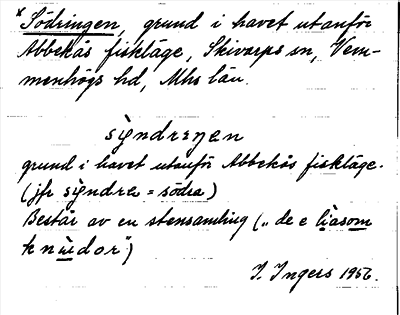 *Södringen, grund i havet utanför
Abbekås fiskläge, Skivarps sn, Vem-
menhögs hd, Mhs län.
sỳndreŋen
grund i havet utanför Abbekås fiskläge.
(jfr sỳndre = södra)
Består av en stensamling („de e lìasom
knùdor")
I. Ingers 1956.